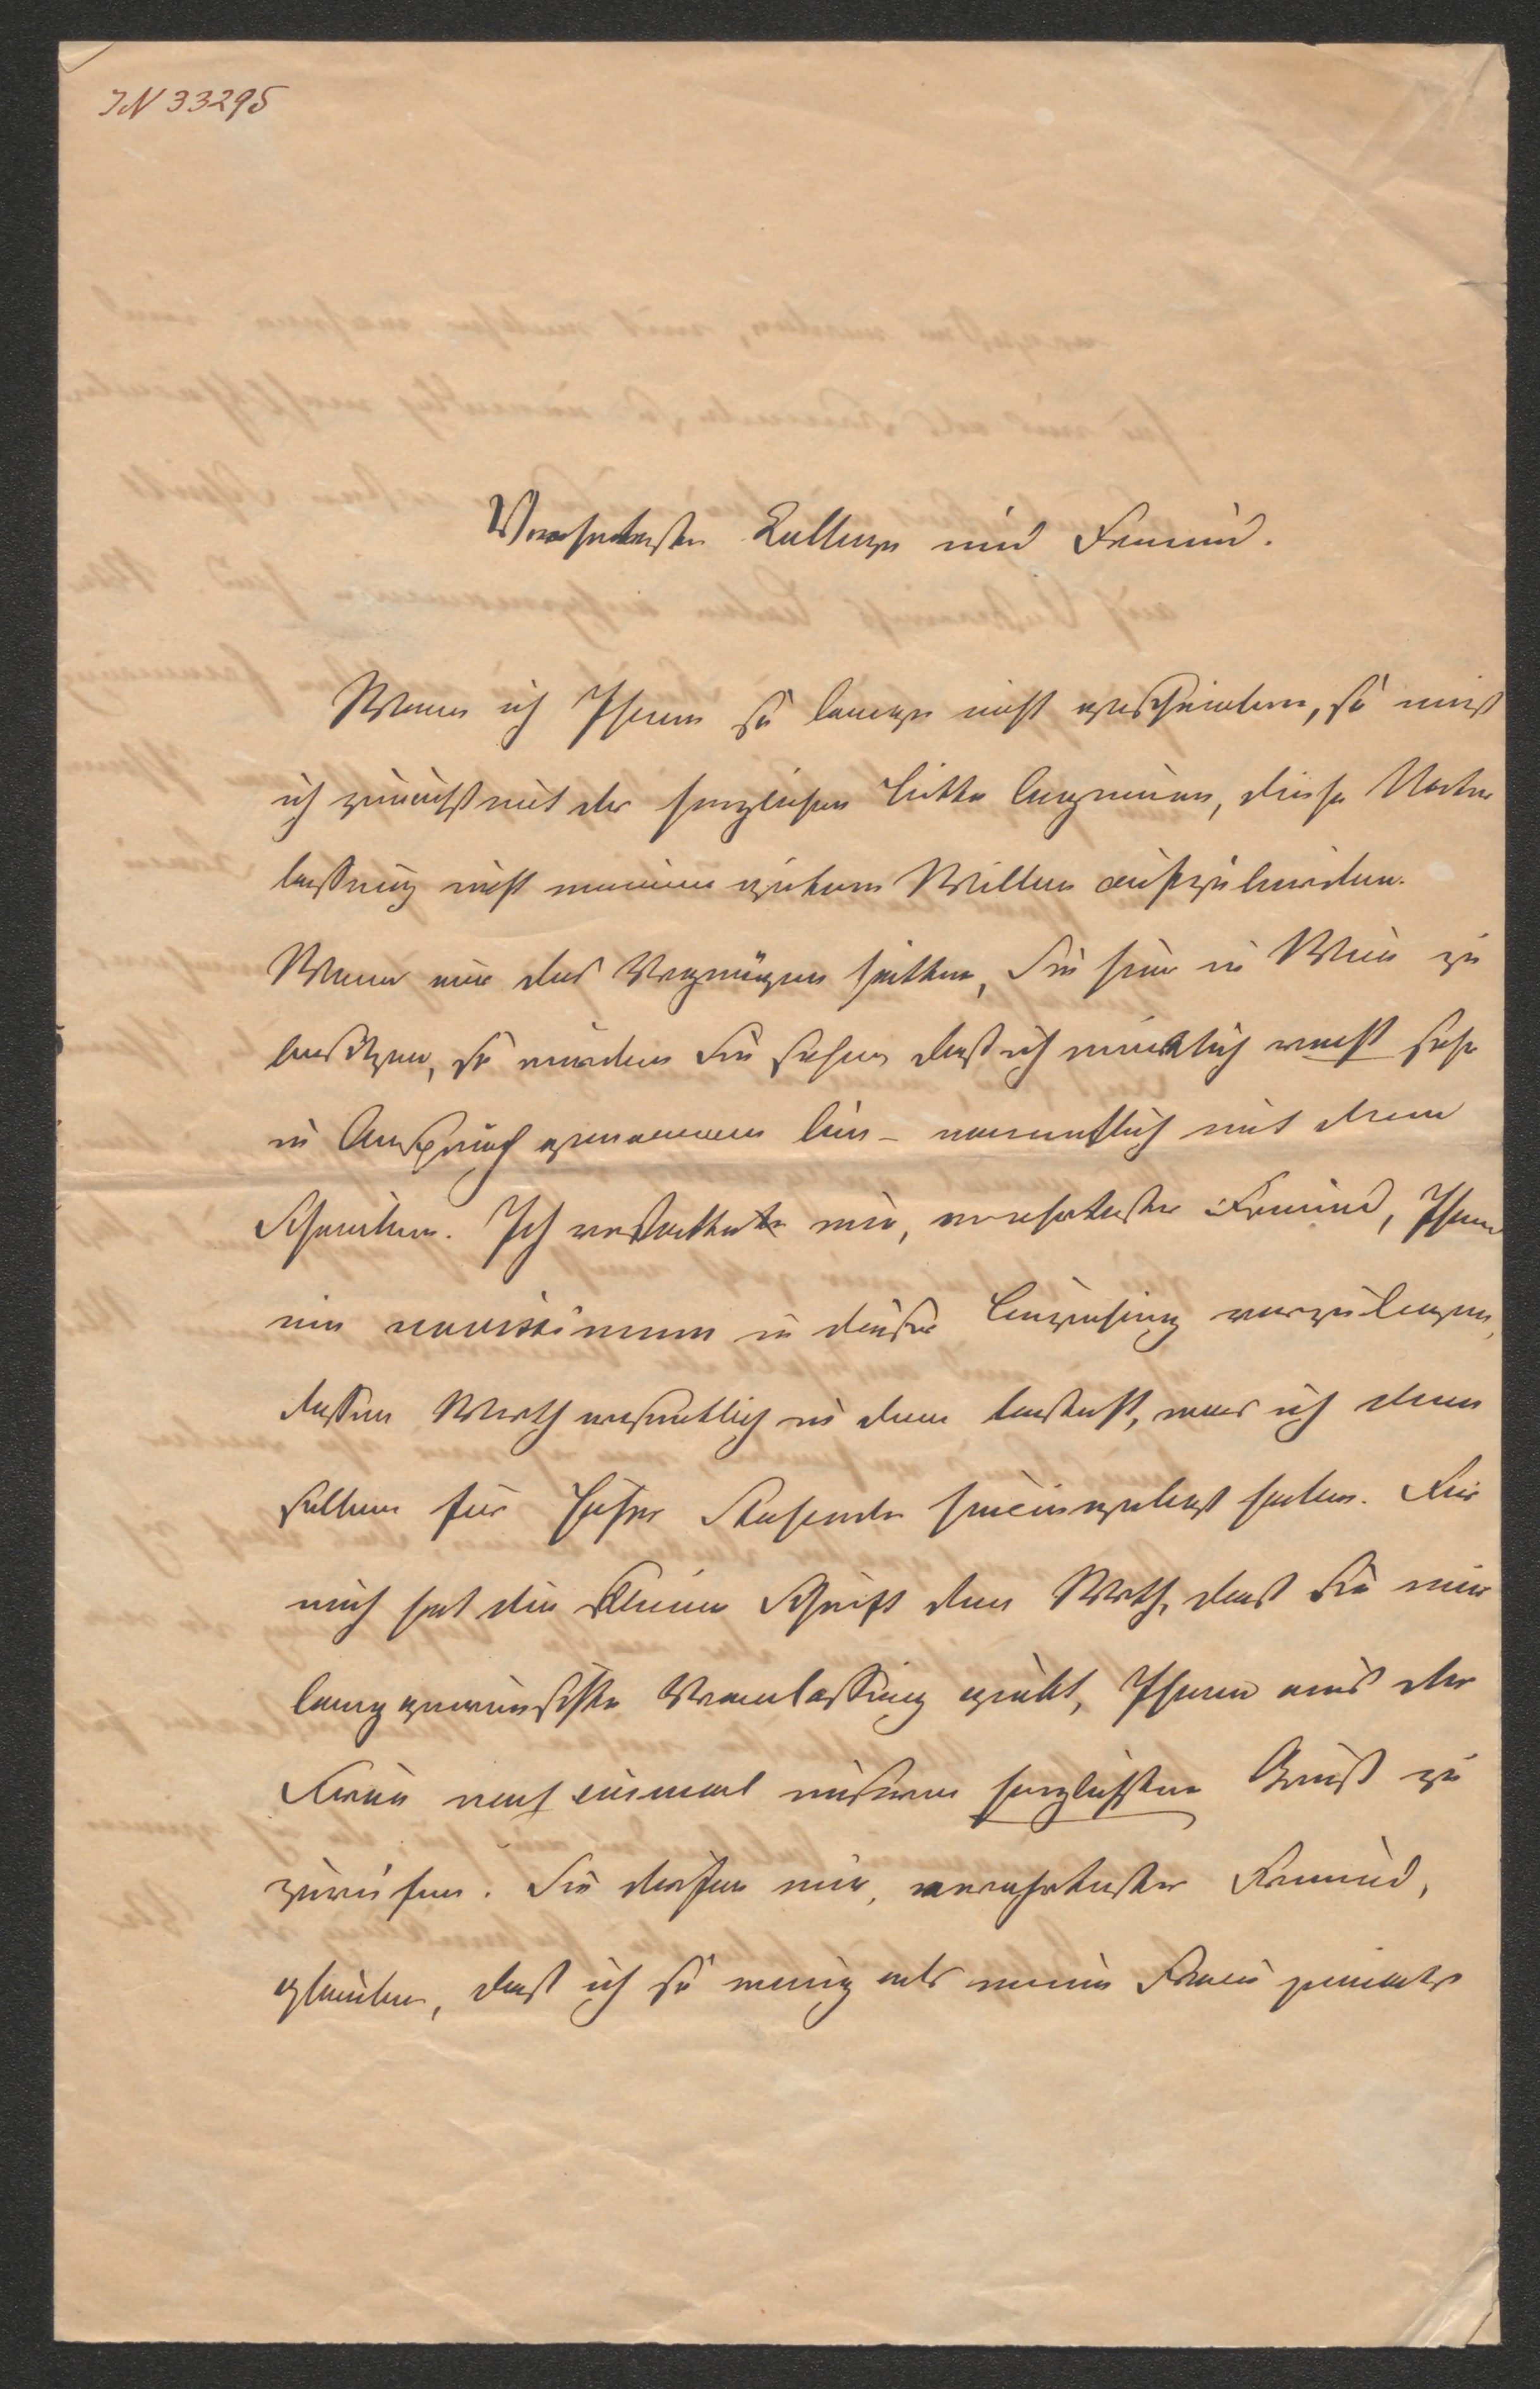 IN 33295
Verehrtester College und Freund.
Wenn ich Ihnen so lange nicht geschrieben, so muß
ich zunächst mit der herzlichen Bitte beginnen, diese Unter
lassung nicht meinem guten Willen aufzubürden.
Wenn wir das Vergnügen hätten, Sie hier in Wien zu
besitzen, so würden Sie sehen daß ich wirklich recht sehr
in Anspruch genommen bin – namentlich mit dem
Schreiben. Ich gestatte mir, verehrtester Freund, Ihnen
ein novissimum in dieser Beziehung vorzulegen,
dessen Werth wesentlich in dem besteht, was ich dem
selben für Ihre Studenten hineingelegt haben. Für
mich hat die kleine Schrift den Werth, daß sie mir
lang gewünschte Veranlassung giebt, Ihnen und der
Frau noch einmal unseren herzlichsten Gruß zu
zurufen. Sie dürfen mir, verehrtester Freund,
glauben, daß ich so wenig als meine Frau jemals